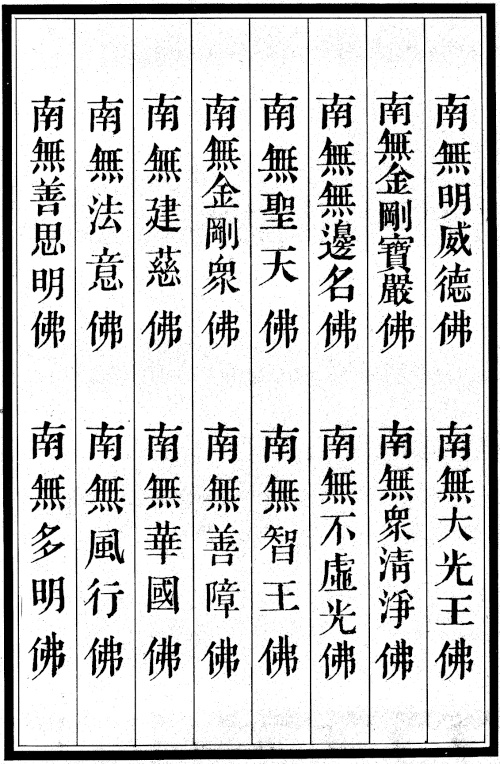 南無明威德佛　南無大光王佛
南無金剛寶嚴佛　南無衆清淨佛
南無無邊名佛　南無不虛光佛
南無聖天佛　南無智王佛
南無金剛衆佛　南無善障佛
南無建慈佛　南無華國佛
南無法意佛　南無風行佛
南無善思明佛　南無多明佛